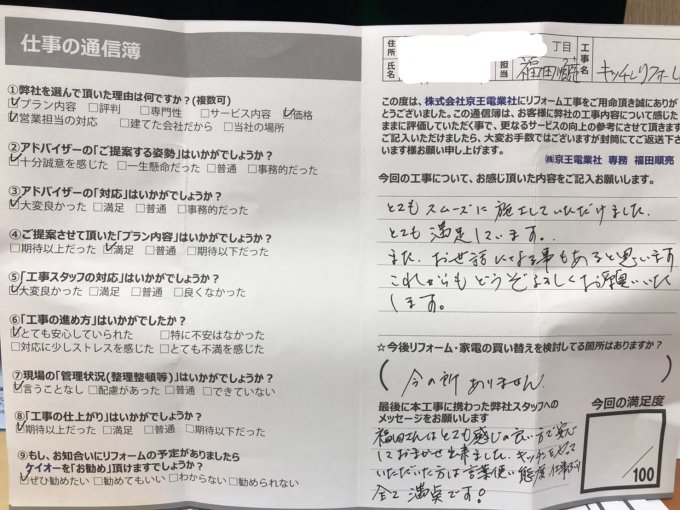 仕事の通信簿
①弊社を選んで頂いた理由は何ですか？(複数可)
☑プラン内容 □評判 □専門性 □サービス内容 ☑価格
☑営業担当の対応 □建てた会社だから □当社の場所
②アドバイザーの「ご提案する姿勢」はいかがでしょうか？
☑十分誠意を感じた □一生懸命だった □普通 □事務的だった
③アドバイザーの「対応」はいかがでしょうか？
☑大変良かった □満足 □普通 □事務的だった
④ご提案させて頂いた「プラン内容」はいかがでしょうか？
□期待以上だった ☑満足 □普通 □期待以下だった
⑤「工事スタッフの対応」はいかがでしょうか？
☑大変良かった □満足 □普通 □良くなかった
⑥「工事の進め方」はいかがでしたか？
☑とても安心していられた □特に不安はなかった
□対応に少しストレスを感じた □とても不満を感じた
⑦現場の「管理状況(整理整頓等)」はいかがでしょうか？
☑言うことなし □配慮があった □普通 □できていない
⑧「工事の仕上がり」はいかがでしょうか？
☑期待以上だった □満足 □普通 □期待以下だった
⑨もし、お知合いにリフォームの予定がありましたら
ケイオーを「お勧め」頂けますでしょうか？
☑ぜひ勧めたい □勧めてもいい □わからない □勧められない
住所 丁目
氏名
担当 福田順亮
工事名 キッチンリフォーム
この度は、株式会社京王電業社にリフォーム工事をご用命頂き誠にありが
とうございました。この通信簿は、お客様に弊社の工事内容について感じた
ままに評価していただく事で、更なるサービスの向上の参考にさせて頂きます
ご記入いただけましたら、大変お手数ではございますが封筒にてご返送下さ
います様お願い申し上げます。
㈱京王電業社 専務 福田順亮
今回の工事について、お感じ頂いた内容をご記入お願いします。
とてもスムーズに施工していただけました。
とても満足しています。
また、お世話になる事もあると思います
これからもどうぞよろしくお願いいた
します。
☆今後リフォーム・家電の買い替えを検討してる箇所はありますか？
(今の所ありません。)
最後に本工事に携わった弊社スタッフへの
メッセージをお願いします
福田さんはとても感じの良い方で安心
しておまかせ出来ました。キッチンをやって
いただいた方は言葉使い態度仕事ぶり
全て満点です！
今回の満足度
/100